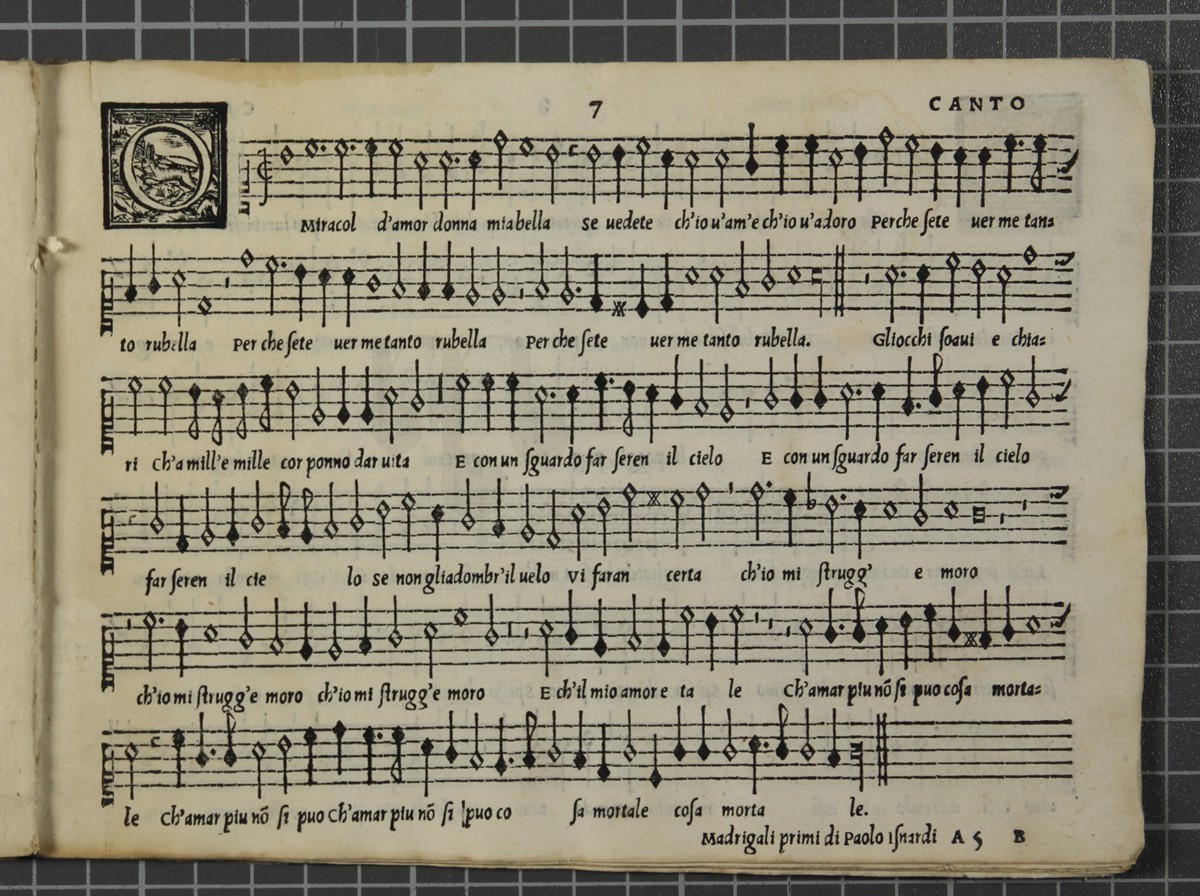 7
CANTO
O Miracol d'amor donna mia bella Se uedete ch'io u'am'e ch'io u'adoro Perche sete uer me tan=
to rubella Per che sete uer me tanto rubella Per che sete uer me tanto rubella. Gliocchi soaui e chia=
ri Ch'a mill'e mille cor ponno dar uita E con un sguardo far seren il cielo E con un sguardo far seren il cielo
far seren il cie lo se non gliadombr'il uelo Vi faran certa ch'io mi strugg' e moro
ch'io mi strugg'e moro ch'io mi strugg'e moro E ch'il mio amor e ta le Ch'amar piu nõ si puo cosa morta=
le Ch'amar piu nõ si puo Ch'amar piu nõ si puo co sa mortale cosa morta le.
Madrigali primi di Paolo Isnardi A 5 B